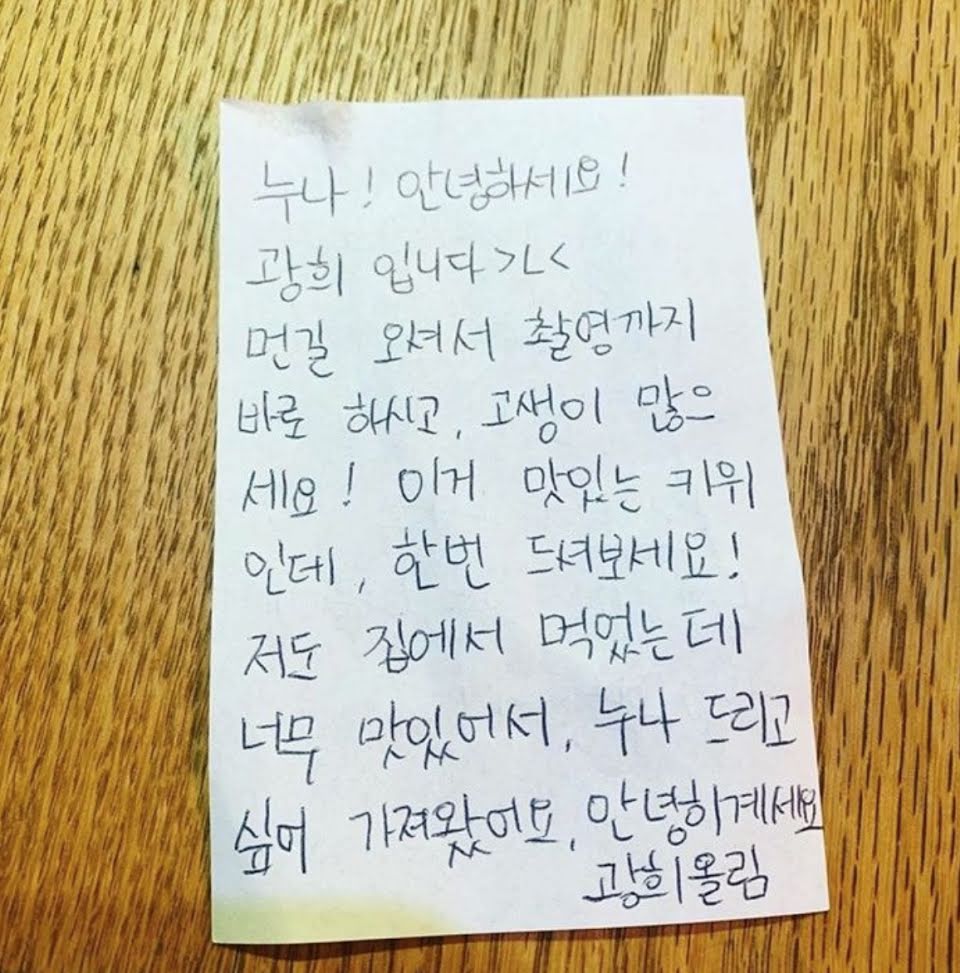 누나! 안녕하세요!
광희 입니다>ㄴ<
먼길 오셔서 촬영까지
바로 하시고, 고생이 많으
세요! 이거 맛있는 키위
인데, 한번 드셔보세요!
저도 집에서 먹었는데
너무 맛있어서, 누나 드리고
싶어 가져왔어요, 안녕하계세요
광희올림